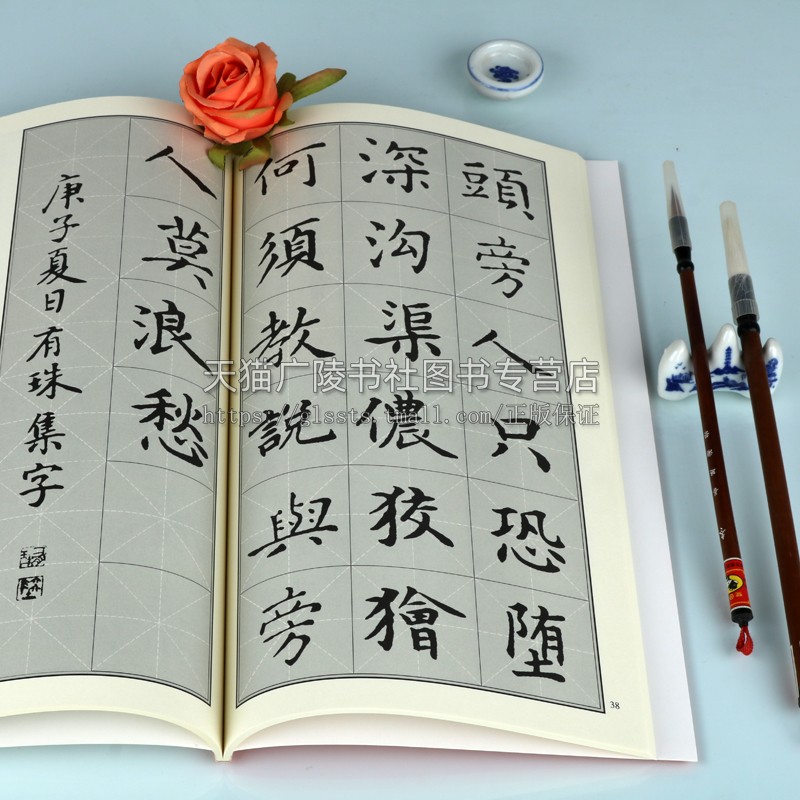 頭旁人只恐堕
深沟渠儂狡獪
何須教説與旁
人莫浪愁
庚子夏日有珠集字
38
天猫广陵书社图书专营店
https://glssts.tmall.com/正版保证